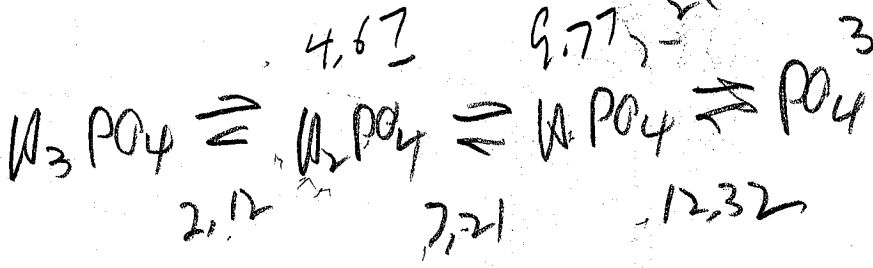 4,67 9,77
H3PO4 ⇌ H2PO4 ⇌ HPO4 ⇌ PO4 3
2,12 7,21 12,32